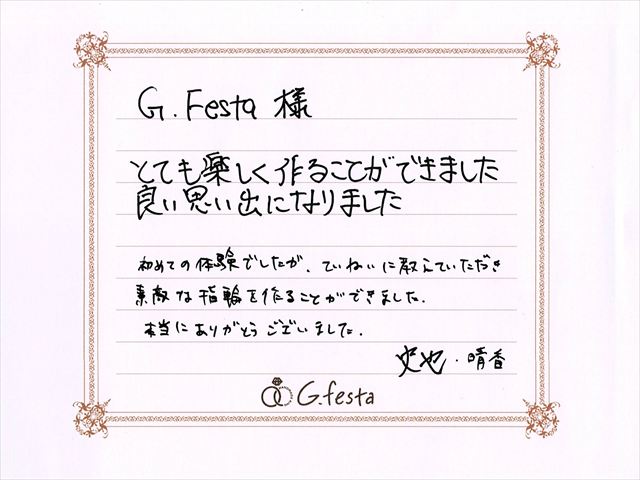 G.Festa 様
とても楽しく作ることができました
良い思い出になりました
初めての体験でしたが、ていねいに教えていただき
素敵な指輪を作ることができました.
本当にありがとうございました.
史也・晴香
G.festa